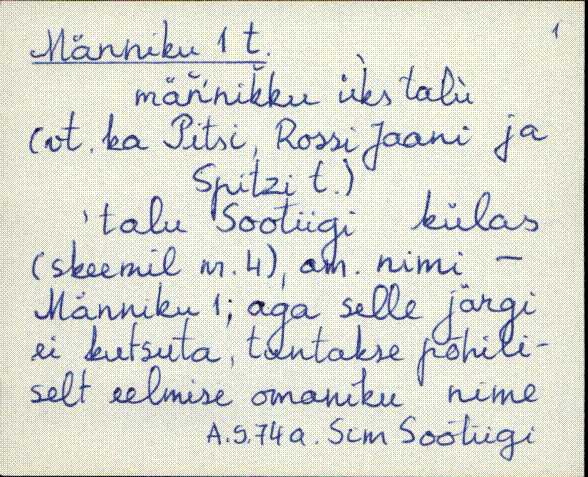 1
Männiku 1 t.
mäňnikku ùks talù
(vt. ka Pitsi, Rossi Jaani ja
Spitzi t.)
talu Sootiigi külas
(skeemil nr. 4), am. nimi –
Männiku 1; aga selle järgi
ei kutsuta, tuntakse põhili-
selt eelmise omaniku nime
A.S. 74 a. Sim Sootiigi